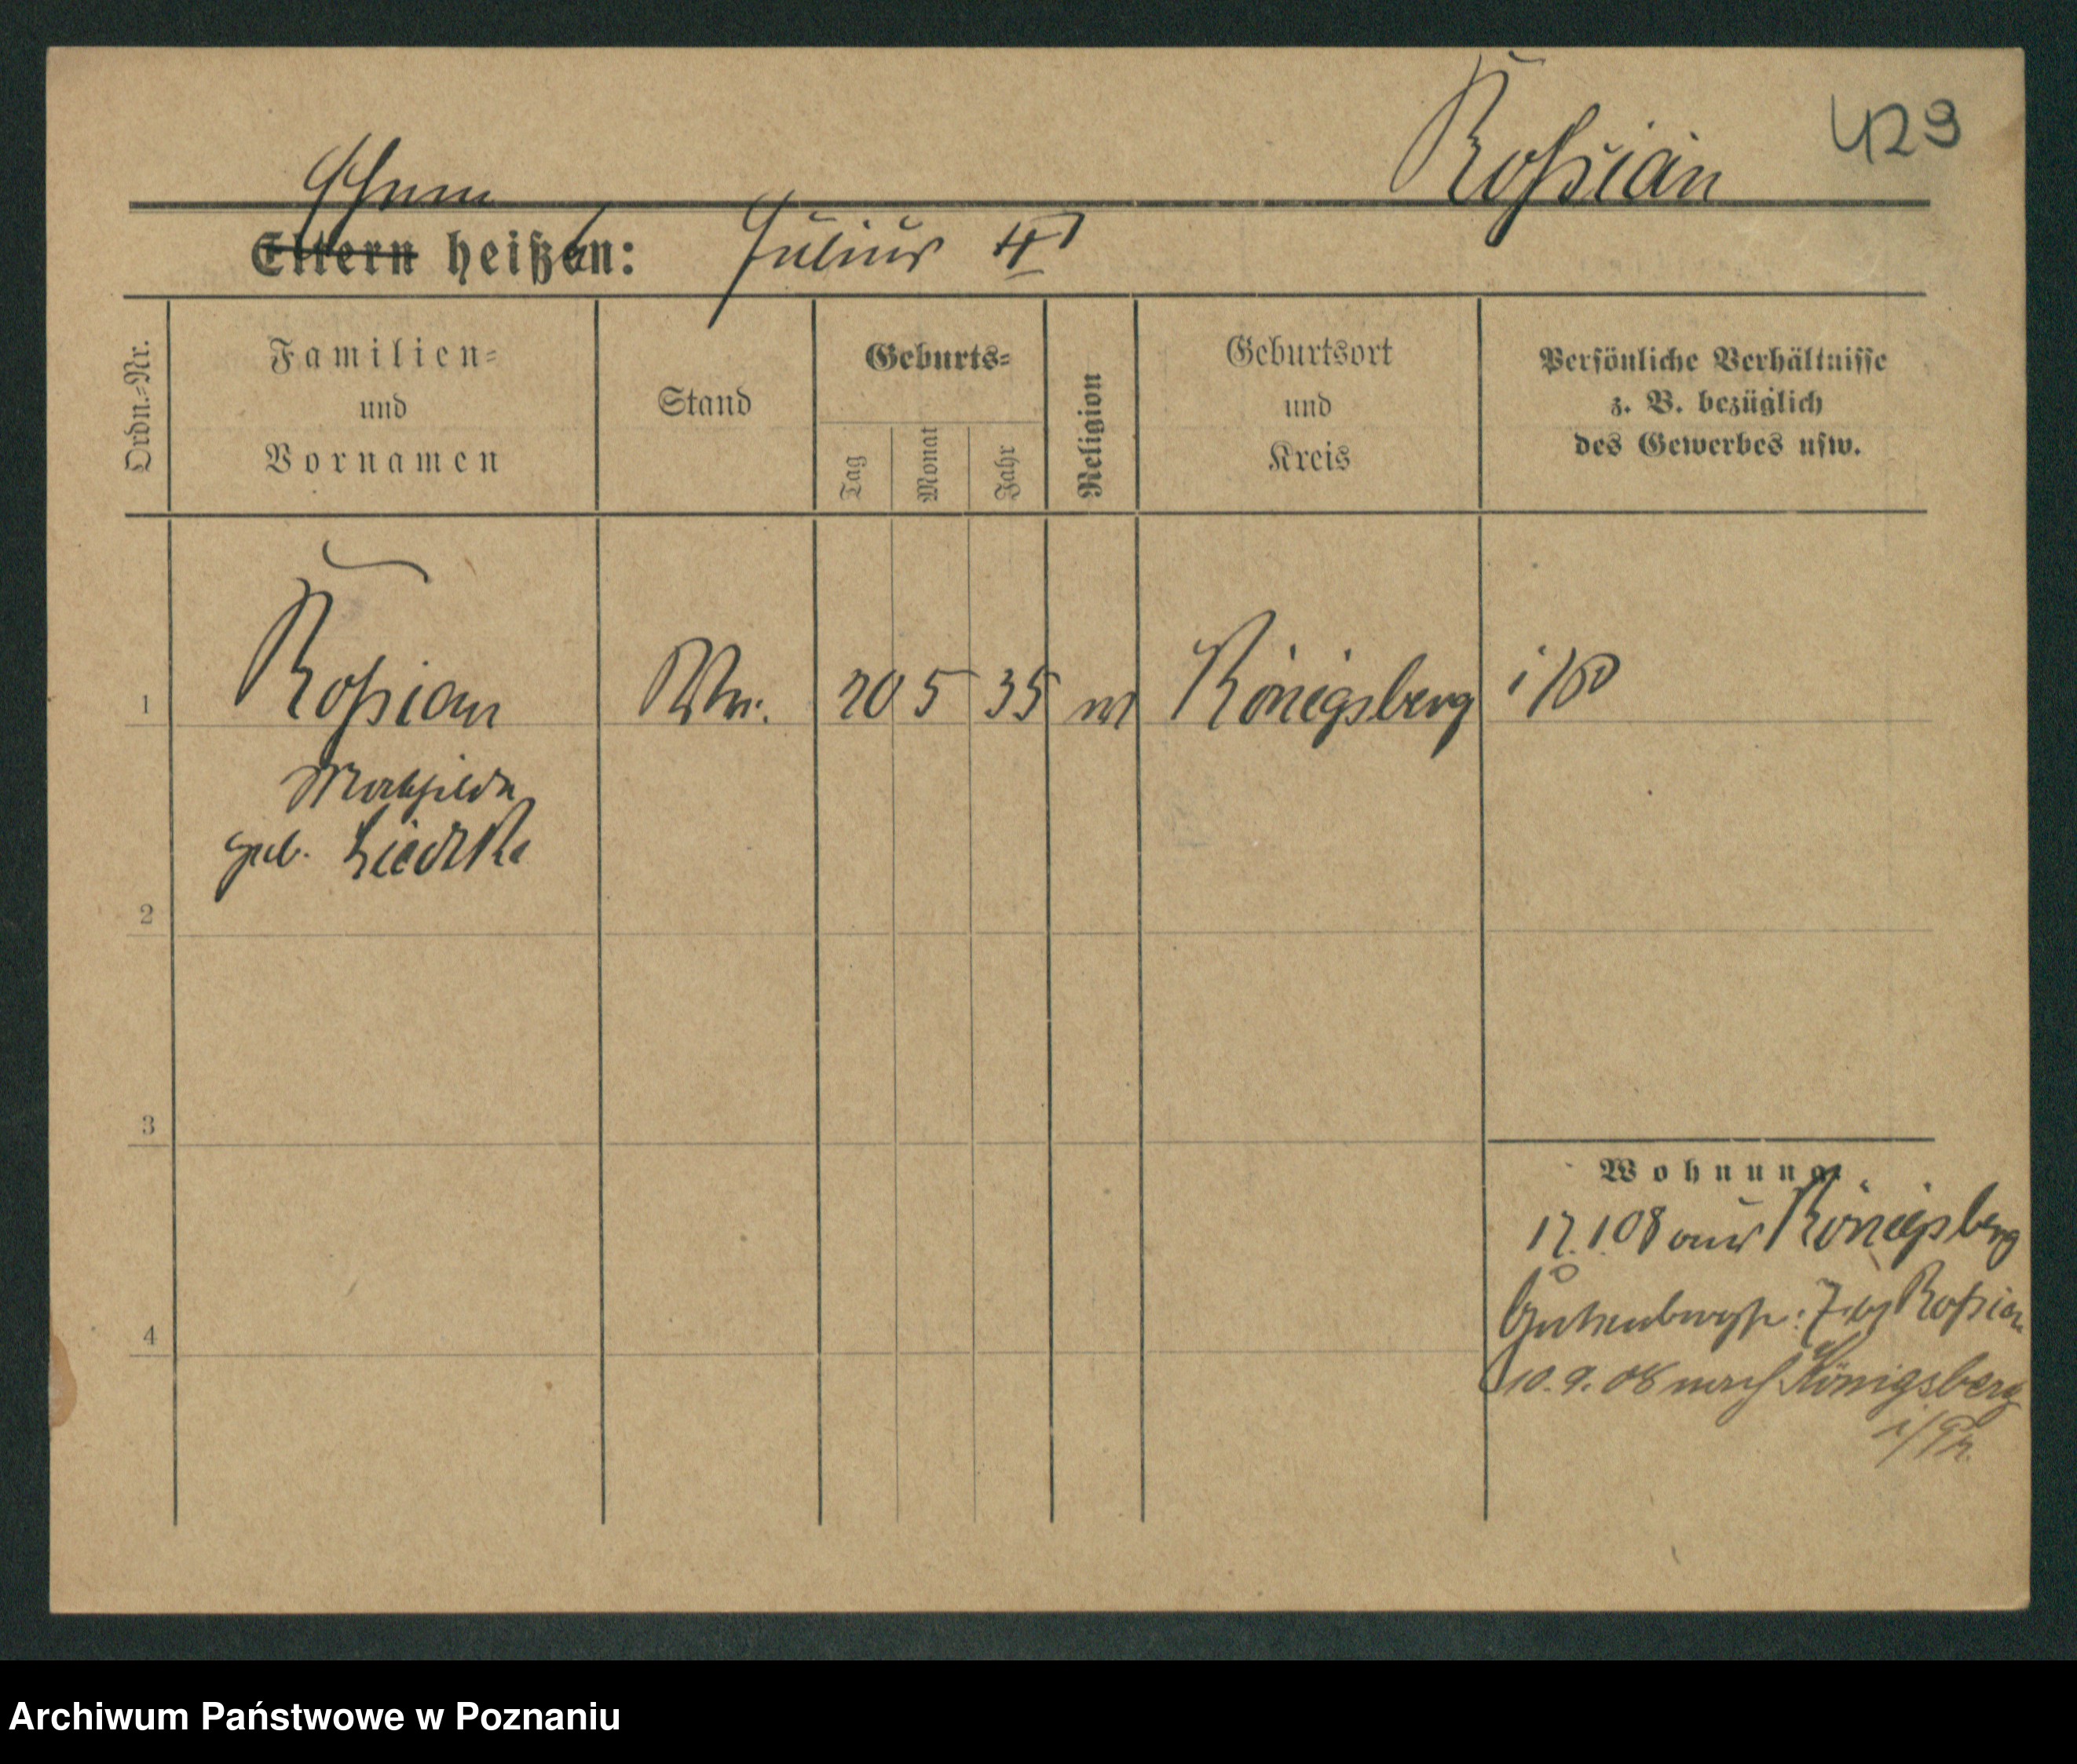 429
Roßian
Ehem
Eltern heißen: Julius II
Ordn.-Nr.
Familien-
und
Vornamen
Stand
Geburts-
Tag
Monat
Jahr
Religion
Geburtsort
und
Kreis
Persönliche Verhältnisse
z. B. bezüglich
des Gewerbes usw.
1
Roßian
Ww.
20 5 35
Königsberg
Mathilde
geb. Liedtke
2
3
4
Wohnung
17.1.08 aus Königsberg
Gutenbergstr. 7 bei Roßian
10.9.08 nach Königsberg
i/Pr.
Archiwum Państwowe w Poznaniu